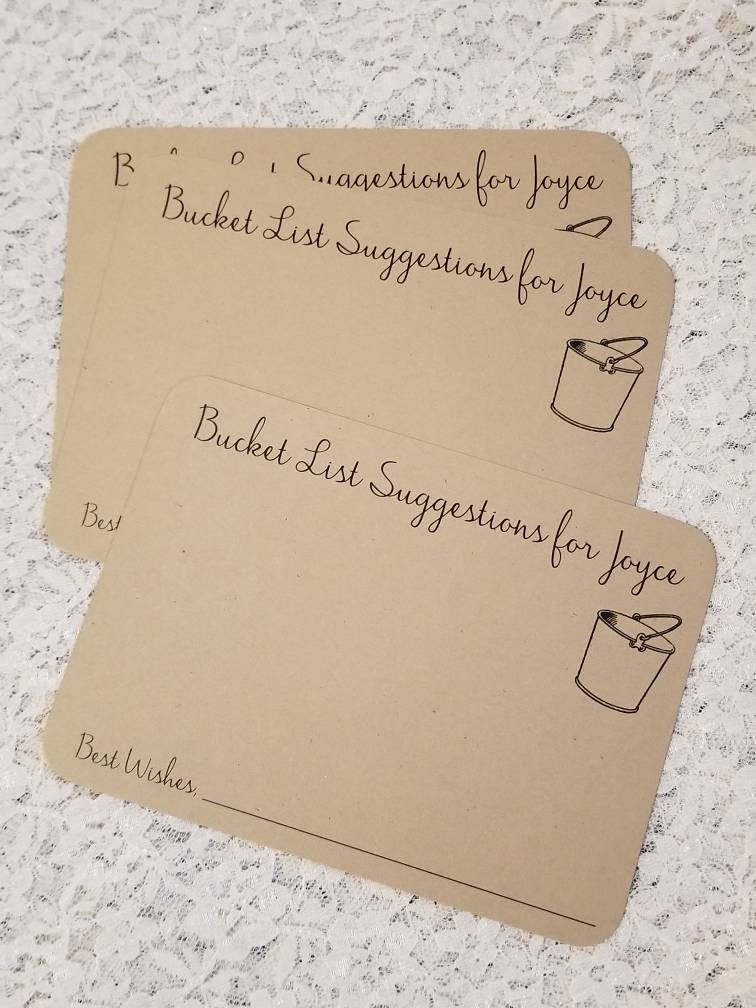 Suggestions for Joyce
Bucket List Suggestions for Joyce
Best
Bucket List Suggestions for Joyce
Best Wishes,